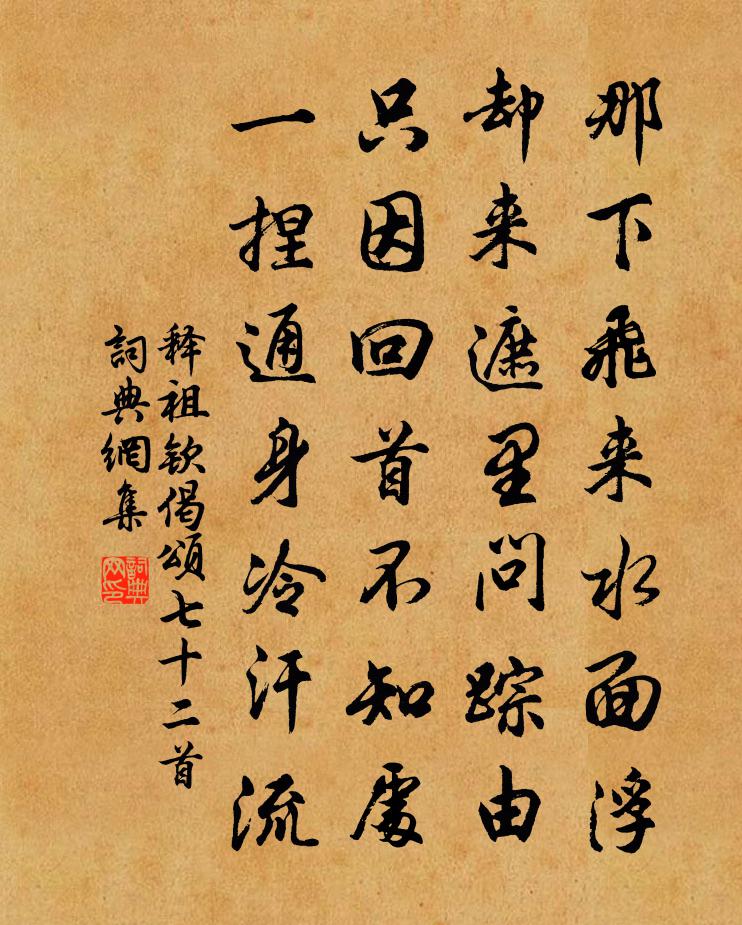 那下飛来水面浮
却来遮里問踪由
只因回首不知處
一捏通身冷汗流
释祖欽偈頌七十二首
詞典網集
詞典网印